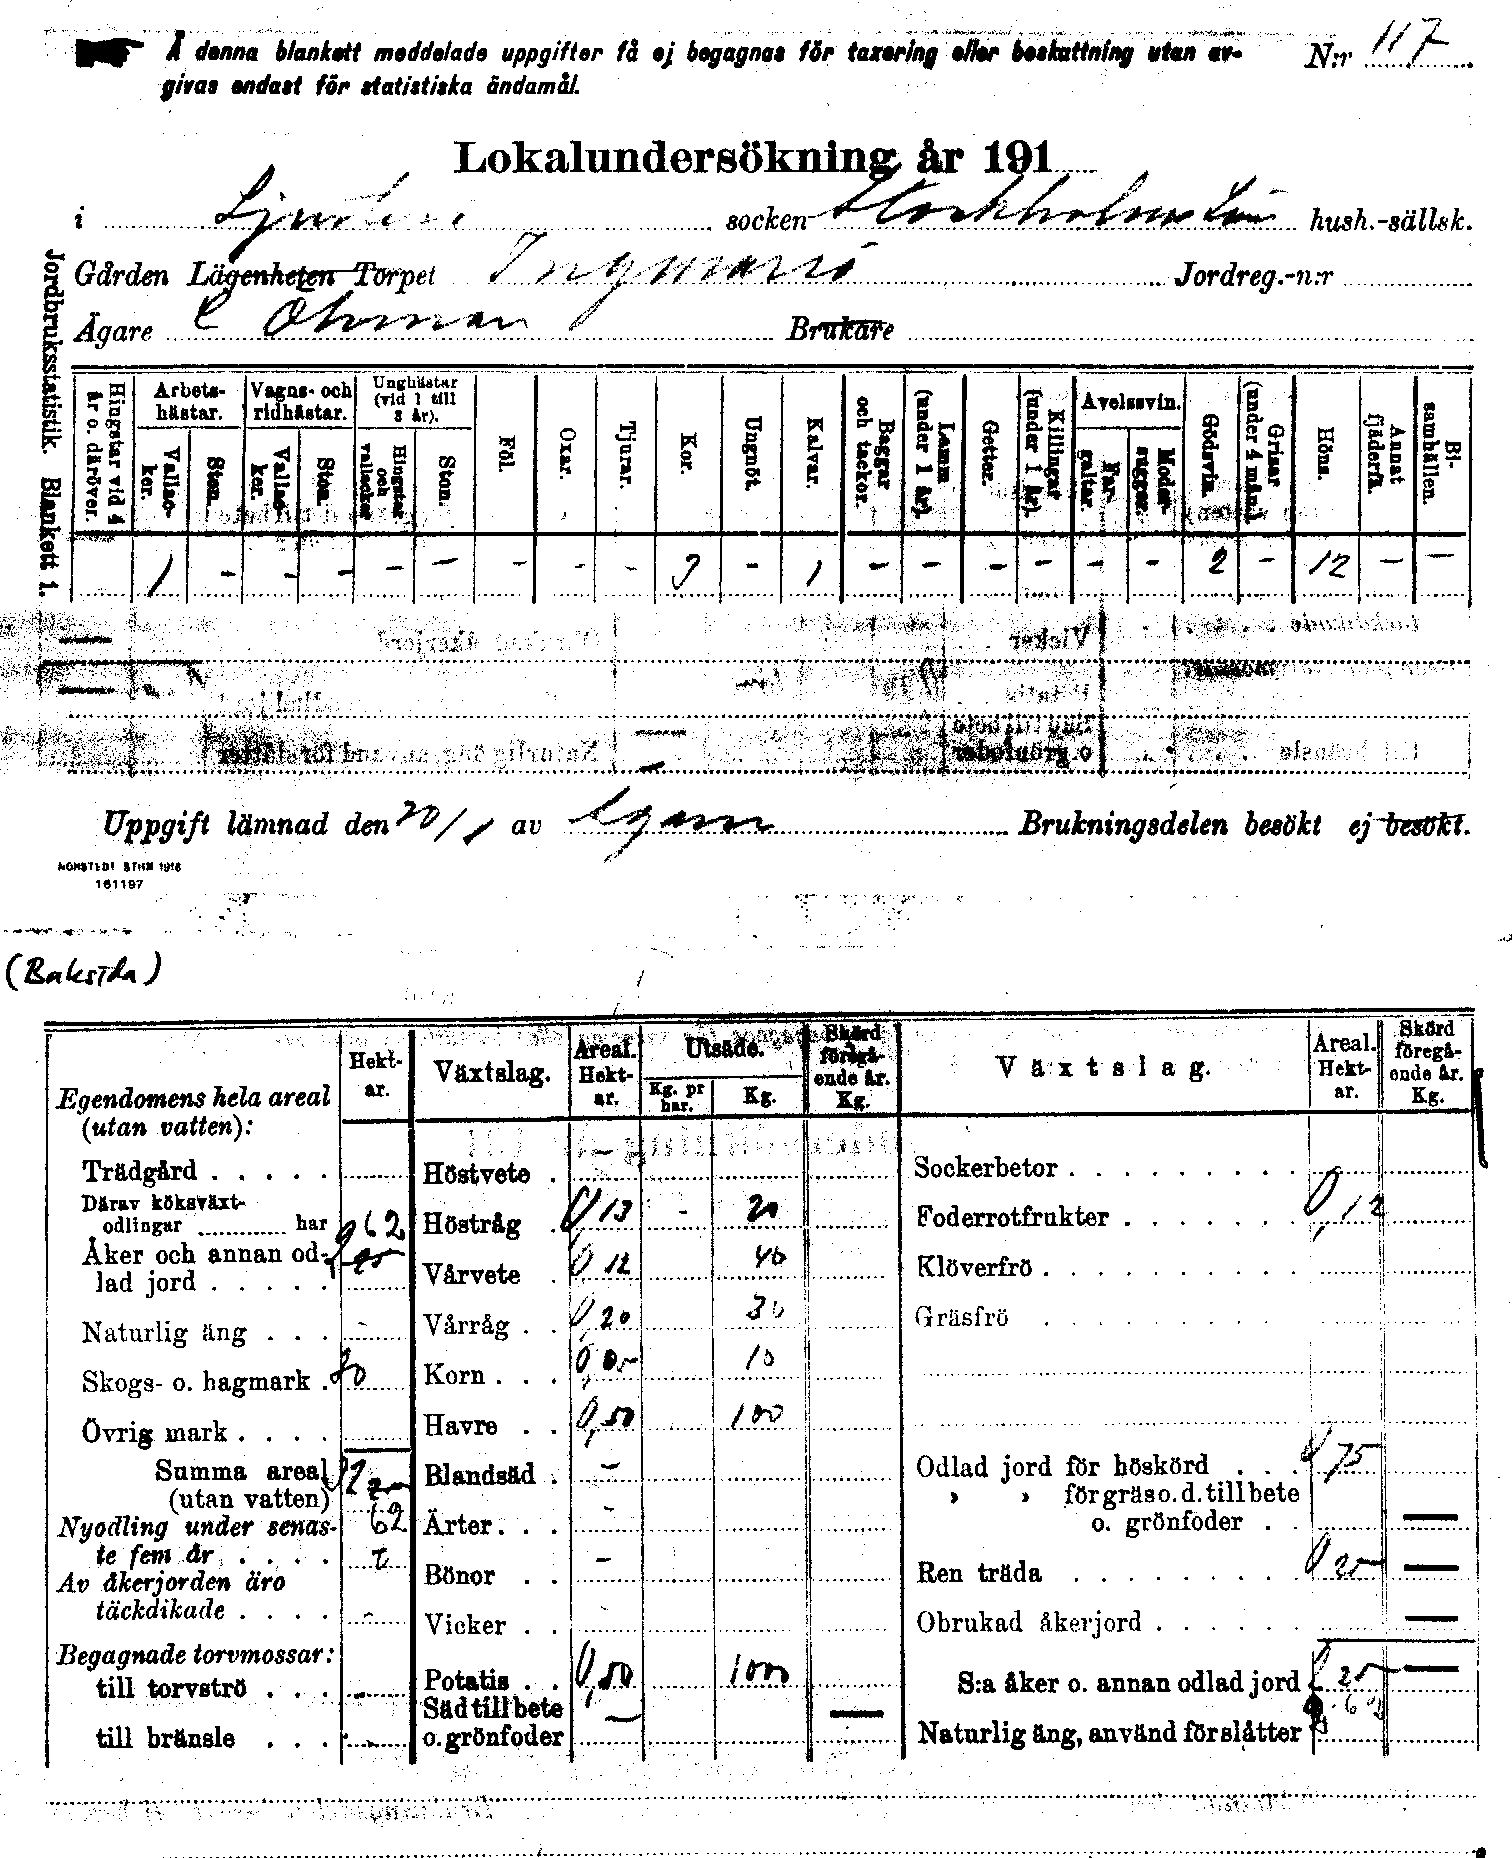 Å denna blankett meddelade uppgifter få ej begagnas för taxering eller beskattning utan av-
givas endast för statistiska ändamål.
N:r 117
Lokalundersökning år 191
i socken Stockholms Län hush.-sällsk.
Gården Lägenheten Torpet Ingmarsö Jordreg.-n:r
Ägare C Öhman Brukare
Jordbruksstatistik. Blankett 1.
Hingstar vid 4 år o. däröver.
Arbets-hästar. Vallac-ker. Ston.
Vagns- och ridhästar. Vallac-ker. Ston.
Unghästar (vid 1 till 3 år). Hingstar och vallacker Ston.
Föl.
Oxar.
Tjurar.
Kor.
Ungnöt.
Kalvar.
Baggar och tackor.
Lamm (under 1 år).
Getter.
Killingar (under 1 år).
Avelssvin. Far-galtar. Moder-suggor.
Gödsvin.
Grisar (under 4 mån.)
Höns.
Annat fjäderfä.
Bi-samhällen.
1 - - - - - - - - - 1 - - - - - - 2 - 12 - -
Uppgift lämnad den 20/1 av Egaren Brukningsdelen besökt ej besökt.
NORSTEDT STHM 1916
161197
(Baksida)
Egendomens hela areal (utan vatten): Hekt-ar.
Trädgård . . . . .
Därav köksväxt-odlingar har
Åker och annan od-lad jord . . . . .
Naturlig äng . . . -
Skogs- o. hagmark . 80
Övrig mark . . . .
Summa areal (utan vatten)
Nyodling under senas-te fem år . . . .
Av åkerjorden äro täckdikade . . . . -
Begagnade torvmossar:
till torvströ . . . -
till bränsle . . . -
Växtslag. Areal. Hekt-ar. Utsäde. Kg. pr har. Kg. Skörd föregå-ende år. Kg.
Höstvete .
Höstråg . 0,13 - 20
Vårvete . 0,12 40
Vårråg . . 0,20 30
Korn . . . 0,05 10
Havre . . 0,50 100
Blandsäd . -
Ärter . . . -
Bönor . . -
Vicker . . -
Potatis . . 0,50 1000
Säd till bete o. grönfoder -
Växtslag. Areal. Hekt-ar. Skörd föregå-ende år. Kg.
Sockerbetor . . . . . . . . .
Foderrotfrukter . . . . . . . 0,12
Klöverfrö . . . . . . . . . .
Gräsfrö . . . . . . . . . .
Odlad jord för höskörd . . . 0,75
» » för gräs o. d. till bete o. grönfoder . .
Ren träda . . . . . . . . . 0,25
Obrukad åkerjord . . . . . .
S:a åker o. annan odlad jord
Naturlig äng, använd för slåtter